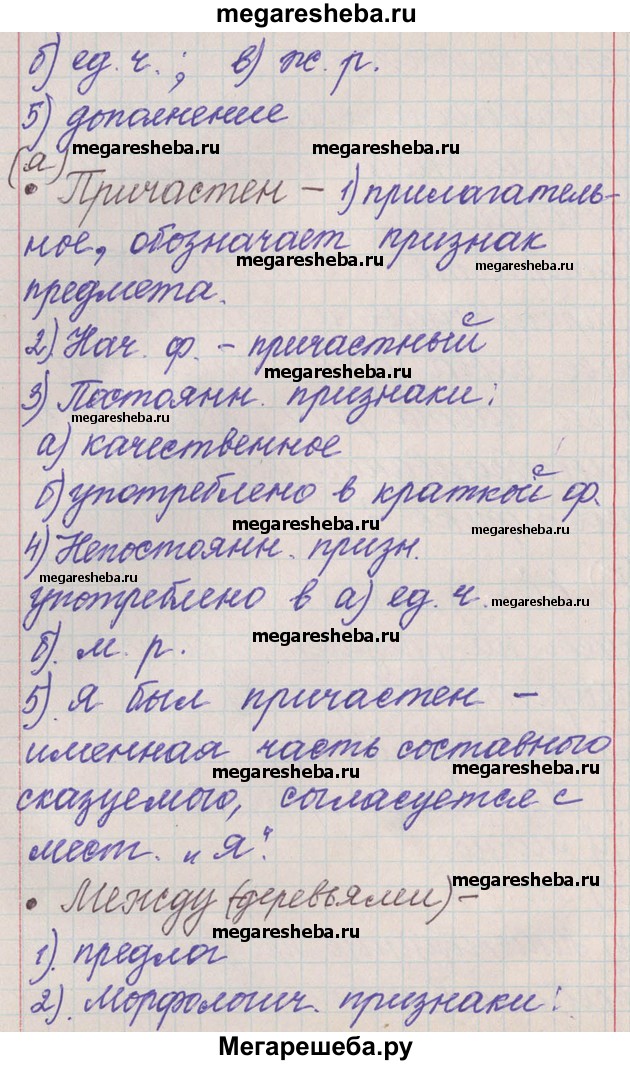 megaresheba.ru
б) ед. ч. ; в) ж. р.
5) дополнение
megaresheba.ru megaresheba.ru
(я)
• Причастен – 1) прилагатель-
ное, обозначает признак
megaresheba.ru megaresheba.ru
предмета.
2) Нач. ф. – причастный
megaresheba.ru
3) Постоянн. признаки:
megaresheba.ru
а) качественное
б) употреблено в краткой ф.
megaresheba.ru megaresheba.ru
4) Непостоянн. призн.
megaresheba.ru
употреблено в а) ед. ч.
megaresheba.ru
megaresheba.ru
б). м. р.
5). Я был причастен –
именная часть составного
megaresheba.ru megaresheba.ru
сказуемого, согласуется с
мест. „Я".
megaresheba.ru
• Между (деревьями) –
megaresheba.ru
1). предлог
2). Морфологич. признаки:
Мегарешеба.ру